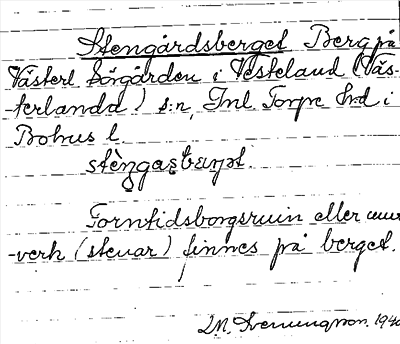 Stengårdsberget Berg på
Västerl Sörgården i Vesteland (Väs-
-terlanda) s:n, Inl. Torpe hd i
Bohus l.

Forntidsborgsruin eller mur
-verk (stenar) finnes på berget.
1940